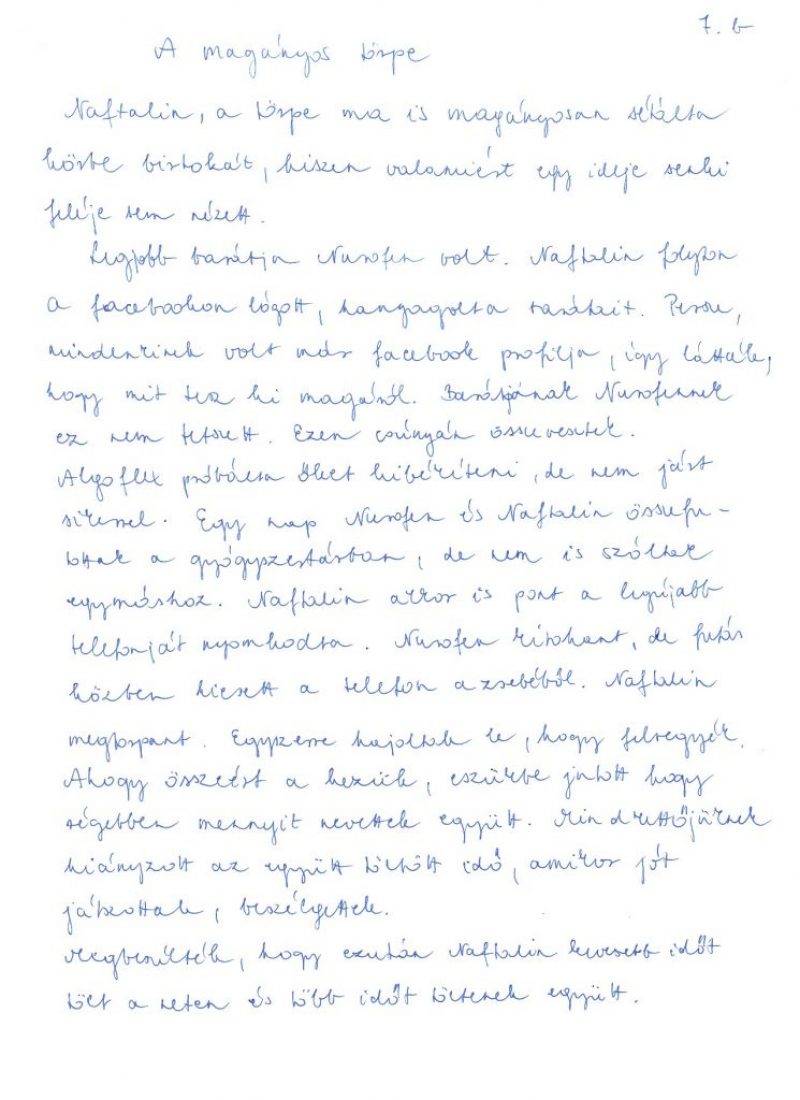 7. b
A magányos törpe
Naftalin, a törpe ma is magányosan sétálta
körbe birtokát, hiszen valamiért egy ideje senki
feléje sem nézett.
Legjobb barátja Nurofen volt. Naftalin folyton
a facebookon lógott, hanyagolta barátait. Persze,
mindenkinek volt már facebook profilja, így látták,
hogy mit tesz ki magáról. Barátjának Nurofennek
ez nem tetszett. Ezen csúnyán összevesztek.
Algoflex próbálta őket kibékíteni, de nem járt
sikerrel. Egy nap Nurofen és Naftalin összefu-
ttak a gyógyszertárban, de nem is szóltak
egymáshoz. Naftalin akkor is pont a legújabb
telefonját nyomkodta. Nurofen kirohant, de futás
közben kiesett a telefon a zsebéből. Naftalin
megtorpant. Egyszerre hajoltak le, hogy felvegyék.
Ahogy összeért a kezük, eszükbe jutott hogy
régebben mennyit nevettek együtt. Mind kettőjüknek
hiányzott az együtt töltött idő, amikor jót
játszottak, beszélgettek.
Megbeszélték, hogy ezután Naftalin kevesebb időt
tölt a neten és több időt töltenek együtt.